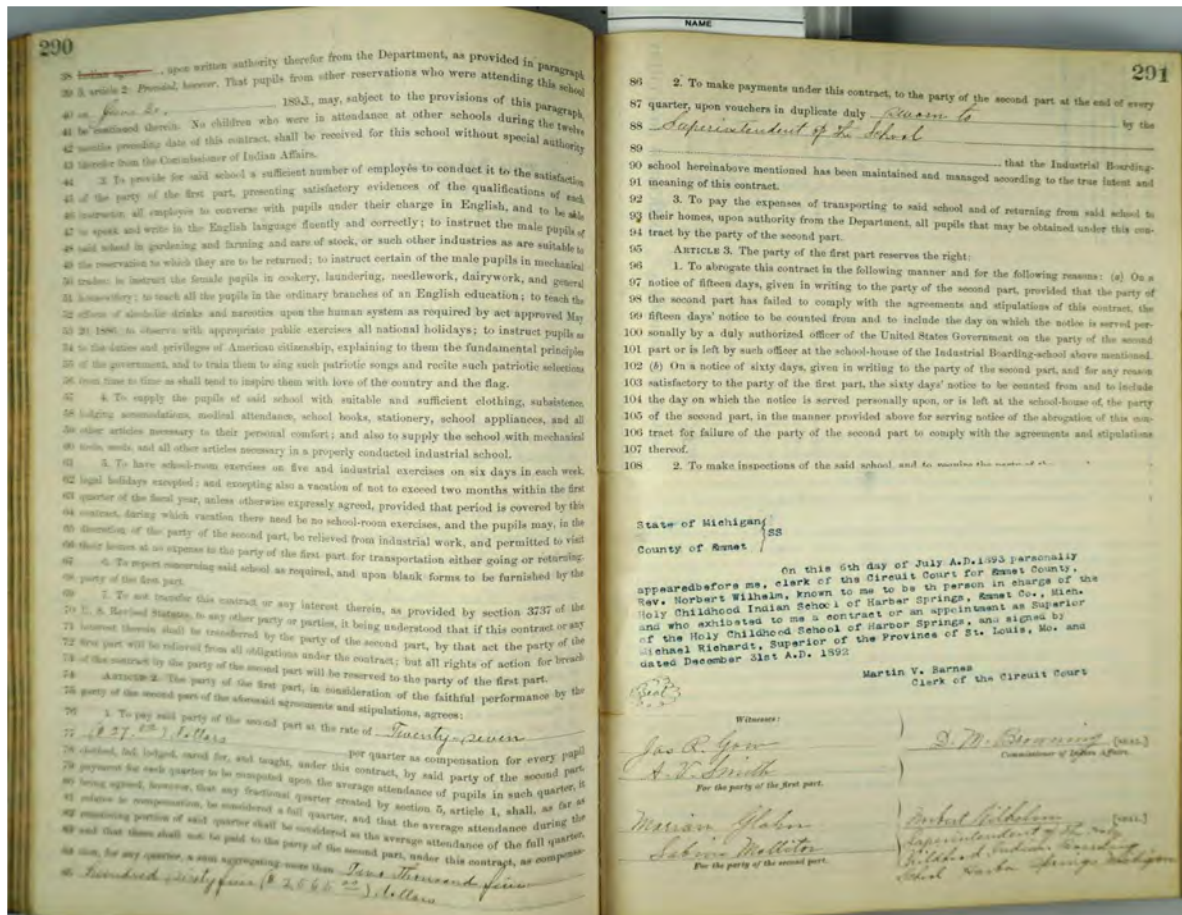 NAME
290
38 Indian agent, upon written authority therefor from the Department, as provided in paragraph
39 3, article 2: Provided, however, That pupils from other reservations who were attending this school
40 on June 30, 1893, may, subject to the provisions of this paragraph,
41 be continued therein. No children who were in attendance at other schools during the twelve
42 months preceding date of this contract, shall be received for this school without special authority
43 therefor from the Commissioner of Indian Affairs.
44 3. To provide for said school a sufficient number of employés to conduct it to the satisfaction
45 of the party of the first part, presenting satisfactory evidences of the qualifications of each
46 instructor, all employés to converse with pupils under their charge in English, and to be able
47 to speak and write in the English language fluently and correctly; to instruct the male pupils of
48 said school in gardening and farming and care of stock, or such other industries as are suitable to
49 the reservation to which they are to be returned; to instruct certain of the male pupils in mechanical
50 trades; to instruct the female pupils in cookery, laundering, needlework, dairywork, and general
51 housewifery; to teach all the pupils in the ordinary branches of an English education; to teach the
52 effects of alcoholic drinks and narcotics upon the human system as required by act approved May
53 20, 1886; to observe with appropriate public exercises all national holidays; to instruct pupils as
54 to the duties and privileges of American citizenship, explaining to them the fundamental principles
55 of the government, and to train them to sing such patriotic songs and recite such patriotic selections
56 from time to time as shall tend to inspire them with love of the country and the flag.
57 4. To supply the pupils of said school with suitable and sufficient clothing, subsistence,
58 lodging accommodations, medical attendance, school books, stationery, school appliances, and all
59 other articles necessary to their personal comfort; and also to supply the school with mechanical
60 tools, seeds, and all other articles necessary in a properly conducted industrial school.
61 5. To have school-room exercises on five and industrial exercises on six days in each week,
62 legal holidays excepted; and excepting also a vacation of not to exceed two months within the first
63 quarter of the fiscal year, unless otherwise expressly agreed, provided that period is covered by this
64 contract, during which vacation there need be no school-room exercises, and the pupils may, in the
65 discretion of the party of the second part, be relieved from industrial work, and permitted to visit
66 their homes at no expense to the party of the first part for transportation either going or returning.
67 6. To report concerning said school as required, and upon blank forms to be furnished by the
68 party of the first part.
69 7. To not transfer this contract or any interest therein, as provided by section 3737 of the
70 U. S. Revised Statutes, to any other party or parties, it being understood that if this contract or any
71 interest therein shall be transferred by the party of the second part, by that act the party of the
72 first part will be relieved from all obligations under the contract; but all rights of action for breach
73 of the contract by the party of the second part will be reserved to the party of the first part.
74 ARTICLE 2. The party of the first part, in consideration of the faithful performance by the
75 party of the second part of the aforesaid agreements and stipulations, agrees:
76 1. To pay said party of the second part at the rate of Twenty-seven
77 ($27.00) dollars per quarter as compensation for every pupil
78 clothed, fed, lodged, cared for, and taught, under this contract, by said party of the second part,
79 payment for each quarter to be computed upon the average attendance of pupils in such quarter, it
80 being agreed, however, that any fractional quarter created by section 5, article 1, shall, as far as
81 relates to compensation, be considered a full quarter, and that the average attendance during the
82 remaining portion of said quarter shall be considered as the average attendance of the full quarter,
83 and that there shall not be paid to the party of the second part, under this contract, as compensa-
84 tion, for any quarter, a sum aggregating more than Two thousand five
85 hundred sixty five ($2565.00) dollars
291
86 2. To make payments under this contract, to the party of the second part at the end of every
87 quarter, upon vouchers in duplicate duly sworn to by the
88 Superintendent of the School
89 that the Industrial Boarding-
90 school hereinabove mentioned has been maintained and managed according to the true intent and
91 meaning of this contract.
92 3. To pay the expenses of transporting to said school and of returning from said school to
93 their homes, upon authority from the Department, all pupils that may be obtained under this con-
94 tract by the party of the second part.
95 ARTICLE 3. The party of the first part reserves the right:
96 1. To abrogate this contract in the following manner and for the following reasons: (a) On a
97 notice of fifteen days, given in writing to the party of the second part, provided that the party of
98 the second part has failed to comply with the agreements and stipulations of this contract, the
99 fifteen days' notice to be counted from and to include the day on which the notice is served per-
100 sonally by a duly authorized officer of the United States Government on the party of the second
101 part or is left by such officer at the school-house of the Industrial Boarding-school above mentioned.
102 (b) On a notice of sixty days, given in writing to the party of the second part, and for any reason
103 satisfactory to the party of the first part, the sixty days' notice to be counted from and to include
104 the day on which the notice is served personally upon, or is left at the school-house of, the party
105 of the second part, in the manner provided above for serving notice of the abrogation of this con-
106 tract for failure of the party of the second part to comply with the agreements and stipulations
107 thereof.
108 2. To make inspections of the said school, and to require the
State of Michigan
SS
County of Emmet
On this 6th day of July A.D.1893 personally
appearedbefore me, clerk of the Circuit Court for Emmet County,
Rev. Norbert Wilhelm, known to me to be th person in charge of the
Holy Childhood Indian School of Harbor Springs, Emmet Co., Mich.
and who exhibated to me a contract or an appointment as Superior
of the Holy Childhood School of Harbor Springs, and signed by
Michael Richardt, Superior of the Province of St. Louis, Mo. and
dated December 31st A.D. 1892
Martin V. Barnes
Clerk of the Circuit Court
Seal
Witnesses:
Jas R. Gow
D. M. Browning [SEAL.]
Commissioner of Indian Affairs.
A. V. Smith
For the party of the first part.
Marian Glahn
Norbert Wilhelm [SEAL.]
Sabina Mollitor
Superintendent of the Holy
Childhood Indian Boarding
School Harbor Springs Michigan
For the party of the second part.